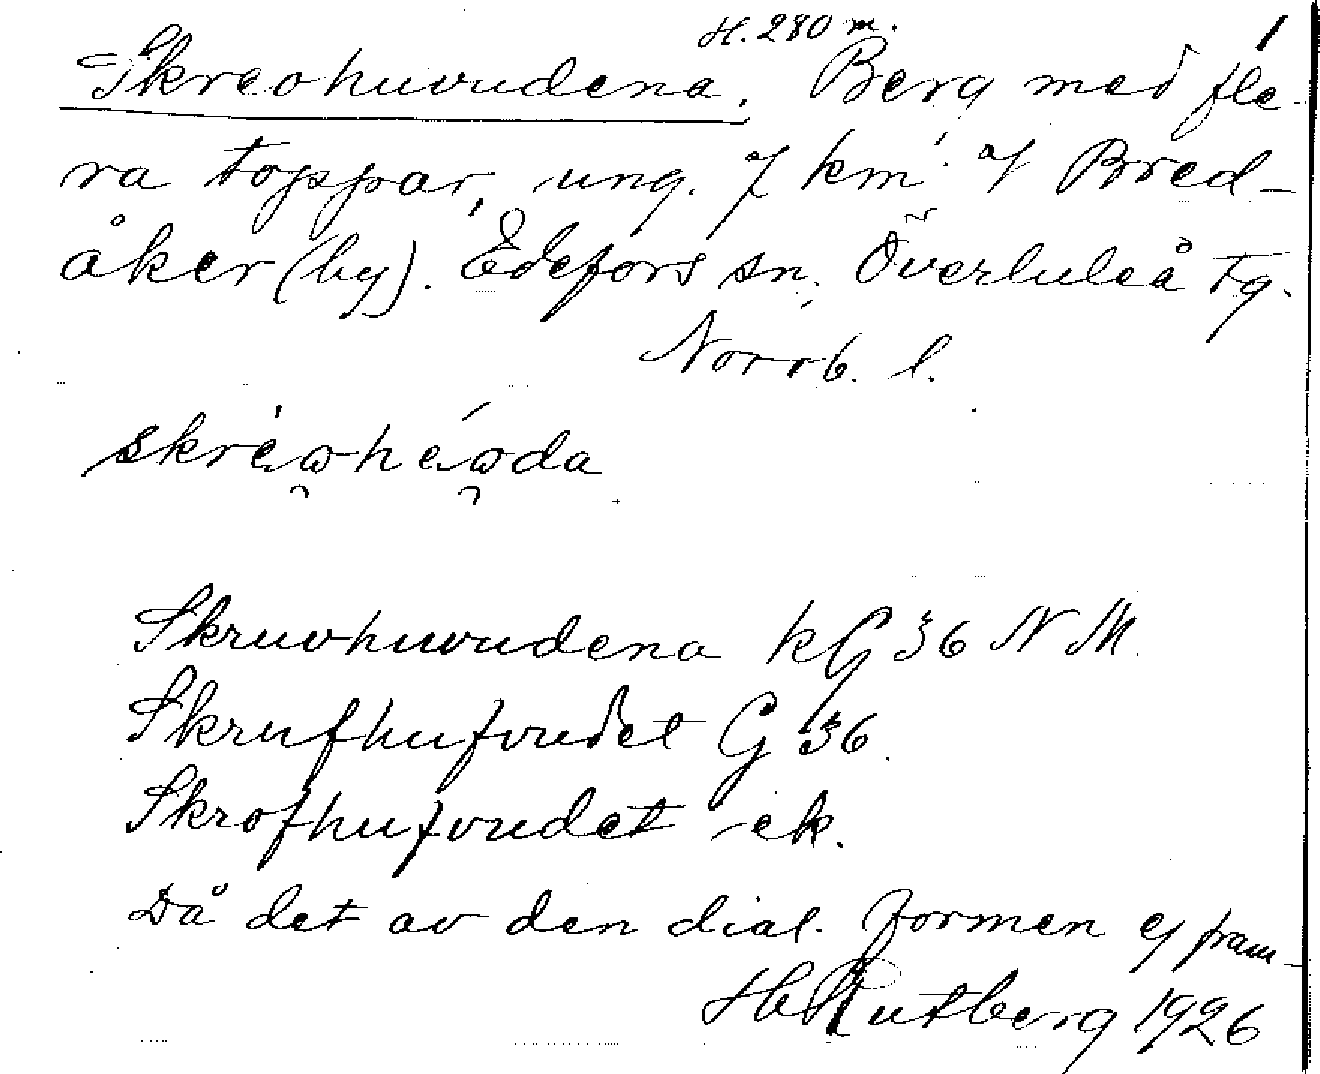 H. 280 m. 1
Skreohuvudena. Berg med fle-
ra toppar, ung. 7 km. Bred-
åker (by). Edefors sn. Överluleå tg.
Norrb. l.
Skruvhuvudena kG 36 N M.
Skrufhufvudet G 36.
Skrofhufvudet ek.
Då det av den dial. formen ej fram-
H Rutberg 1926